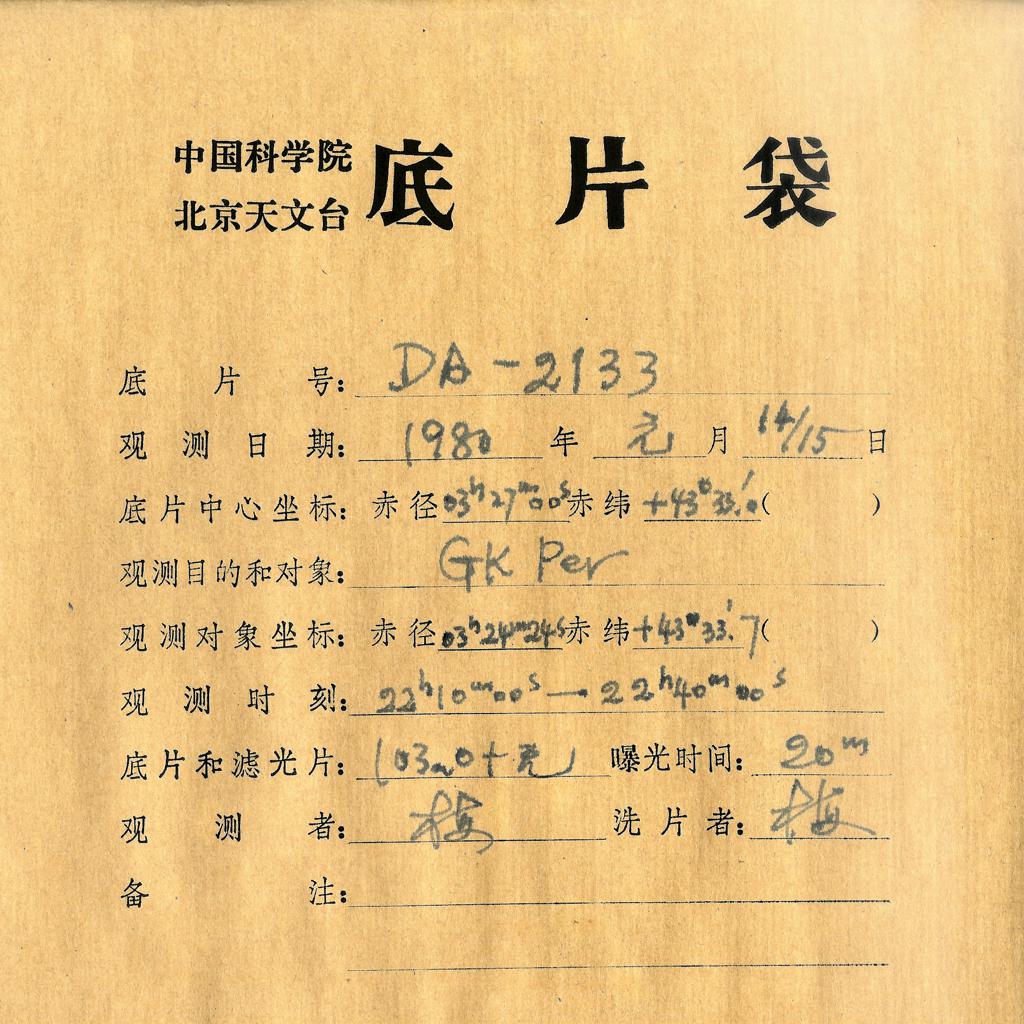 中国科学院
北京天文台
底片袋
底片号: DA-2133
观测日期: 1980 年 元 月 14/15 日
底片中心坐标: 赤径 03ʰ27ᵐ00ˢ 赤纬 +43°33.′0 ( )
观测目的和对象: GK Per
观测对象坐标: 赤径 03ʰ24ᵐ24ˢ 赤纬 +43°33.′7 ( )
观测时刻: 22ʰ10ᵐ00ˢ — 22ʰ40ᵐ00ˢ
底片和滤光片: 103a0+无 曝光时间: 20ᵐ
观测者: 梅 洗片者: 梅
备注: